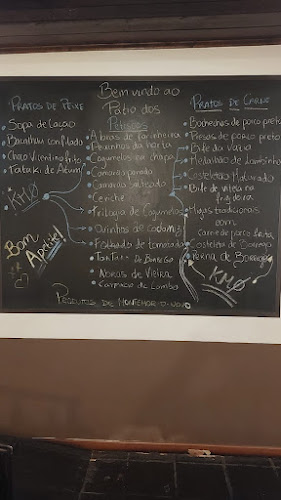 Bem vindo ao
Patio dos
Petiscos
PRATOS DE PEIXE
Sopa de Cação
Bacalhau confitado
Choco Vicentino frito
Tataki de Atum
KMØ
Bom
Apetite!
Peixinhos da horta
Cogumelos na chapa
Camarão panado
Camarão salteado
Ceviche
Tiborna de Cogumelos
Ovinhos de codorniz
Folhado de tomatada
TARTARO DE BORREGO
Vieira
Carpaccio de Lombo
PRATOS DE CARNE
Bochechas de porco preto
Presas de porco preto
Bife da vazia
Medalhão de Lombinho
Costeletão Maturado
Bife de vitela na
frigideira
Migas tradicionais
com
carne de porco frita
Costeletas de Borrego
Perna de Borrego
KMØ
PRODUTOS DE MONTEMOR-O-NOVO